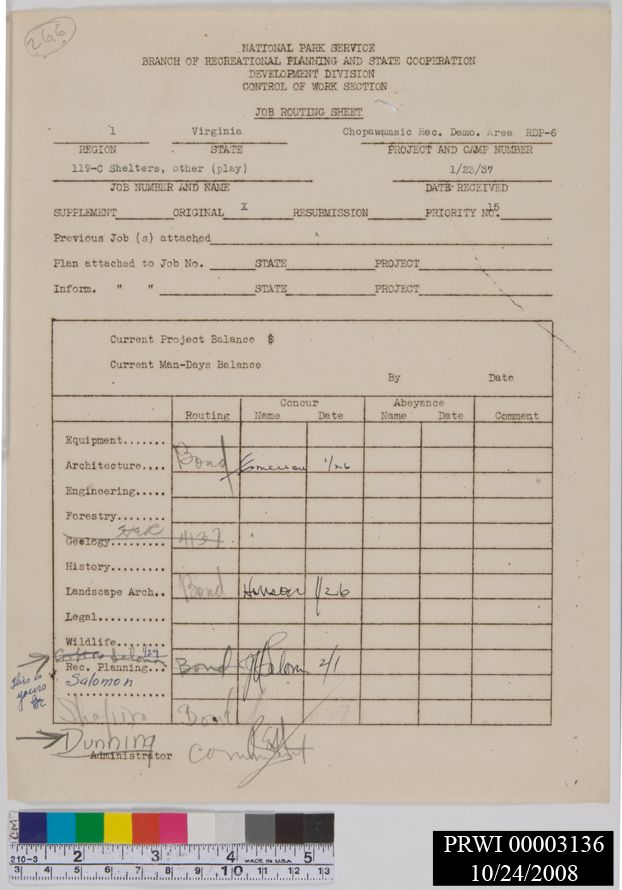 266
NATIONAL PARK SERVICE
BRANCH OF RECREATIONAL PLANNING AND STATE COOPERATION
DEVELOPMENT DIVISION
CONTROL OF WORK SECTION
JOB ROUTING SHEET
1 Virginia Chopawamsic Rec. Demo. Area RDP-6
REGION STATE PROJECT AND CAMP NUMBER
119-C Shelters, other (play) 1/23/37
JOB NUMBER AND NAME DATE RECEIVED
SUPPLEMENT ORIGINAL X RESUBMISSION PRIORITY NO. 15
Previous Job (s) attached
Plan attached to Job No. STATE PROJECT
Inform. " " STATE PROJECT
Current Project Balance $
Current Man-Days Balance
By Date
Concur Abeyance
Routing Name Date Name Date Comment
Equipment.......
Architecture.... Bond 1/26
Engineering.....
Forestry........
Geology.........
History.........
Landscape Arch.. Bond 1/26
Legal...........
Wildlife........
Rec. Planning... Bond 2/1
This is yours
Salomon
................
Shapiro Bond
Dunning
Administrator Comment
CM
210-3 2 4 5 MADE IN U.S.A.
3 4 5 6 7 8 9 10 11 12 13
PRWI 00003136
10/24/2008